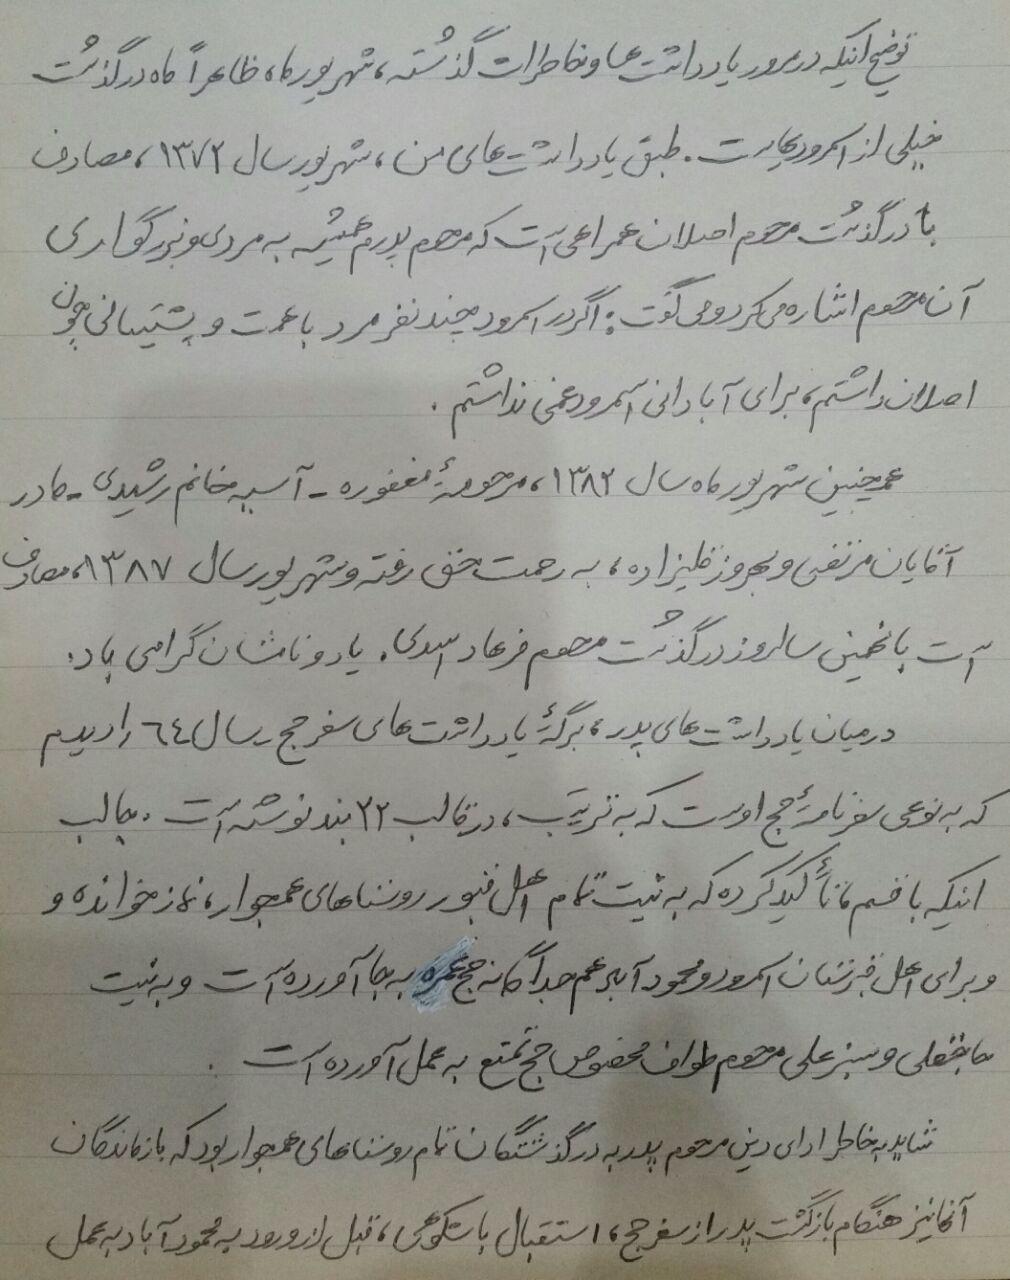 توضیح اینکه در مرور یادداشت‌ها و خاطرات گذشته، شهریورماه، ظاهراً ماه درگذشت
خیلی از اسمرودیهاست. طبق یادداشت‌های من، شهریور سال ۱۳۷۲، مصادف
با درگذشت مرحوم اصلان همراهی است که مرحوم پدرم همیشه به مردی و بزرگواری
آن مرحوم اشاره می‌کرد و می‌گفت: اگر در اسمرود چند نفر مرد با همت و پشتیبانی چون
اصلان داشتم، برای آبادانی اسمرود غمی نداشتم.
همچنین شهریور ماه سال ۱۳۸۲، مرحومهٔ مغفوره - آسیه خانم رشیدی - مادر
آقایان مرتضی و بهروز قلیزاده، به رحمت حق رفته و شهریور سال ۱۳۸۷، مصادف
است با پنجمین سالروز درگذشت مرحوم فرهاد اسدی. یاد و نامشان گرامی باد.
در میان یادداشت‌های پدر، برگهٔ یادداشت‌های سفر حج سال ٦٤ را دیدم
که به نوعی سفرنامهٔ حج اوست که به ترتیب، در قالب ۲۲ بند نوشته است. جالب
اینکه با قسم تأکید کرده که به نیت تمام اهل قبور روستاهای همجوار، نماز خوانده و
و برای اهل قبرستان اسمرود و محمودآباد هم جداگانه حج عمره به جا آورده است و به نیت
و سبزعلی مرحوم طواف مخصوص حج تمتع به عمل آورده است.
شاید به خاطر ادای دین مرحوم پدر به درگذشتگان تمام روستاهای همجوار بود که بازماندگان
آنها نیز هنگام بازگشت پدر از سفر حج، استقبال باشکوهی، قبل از ورود به محمودآباد به عمل